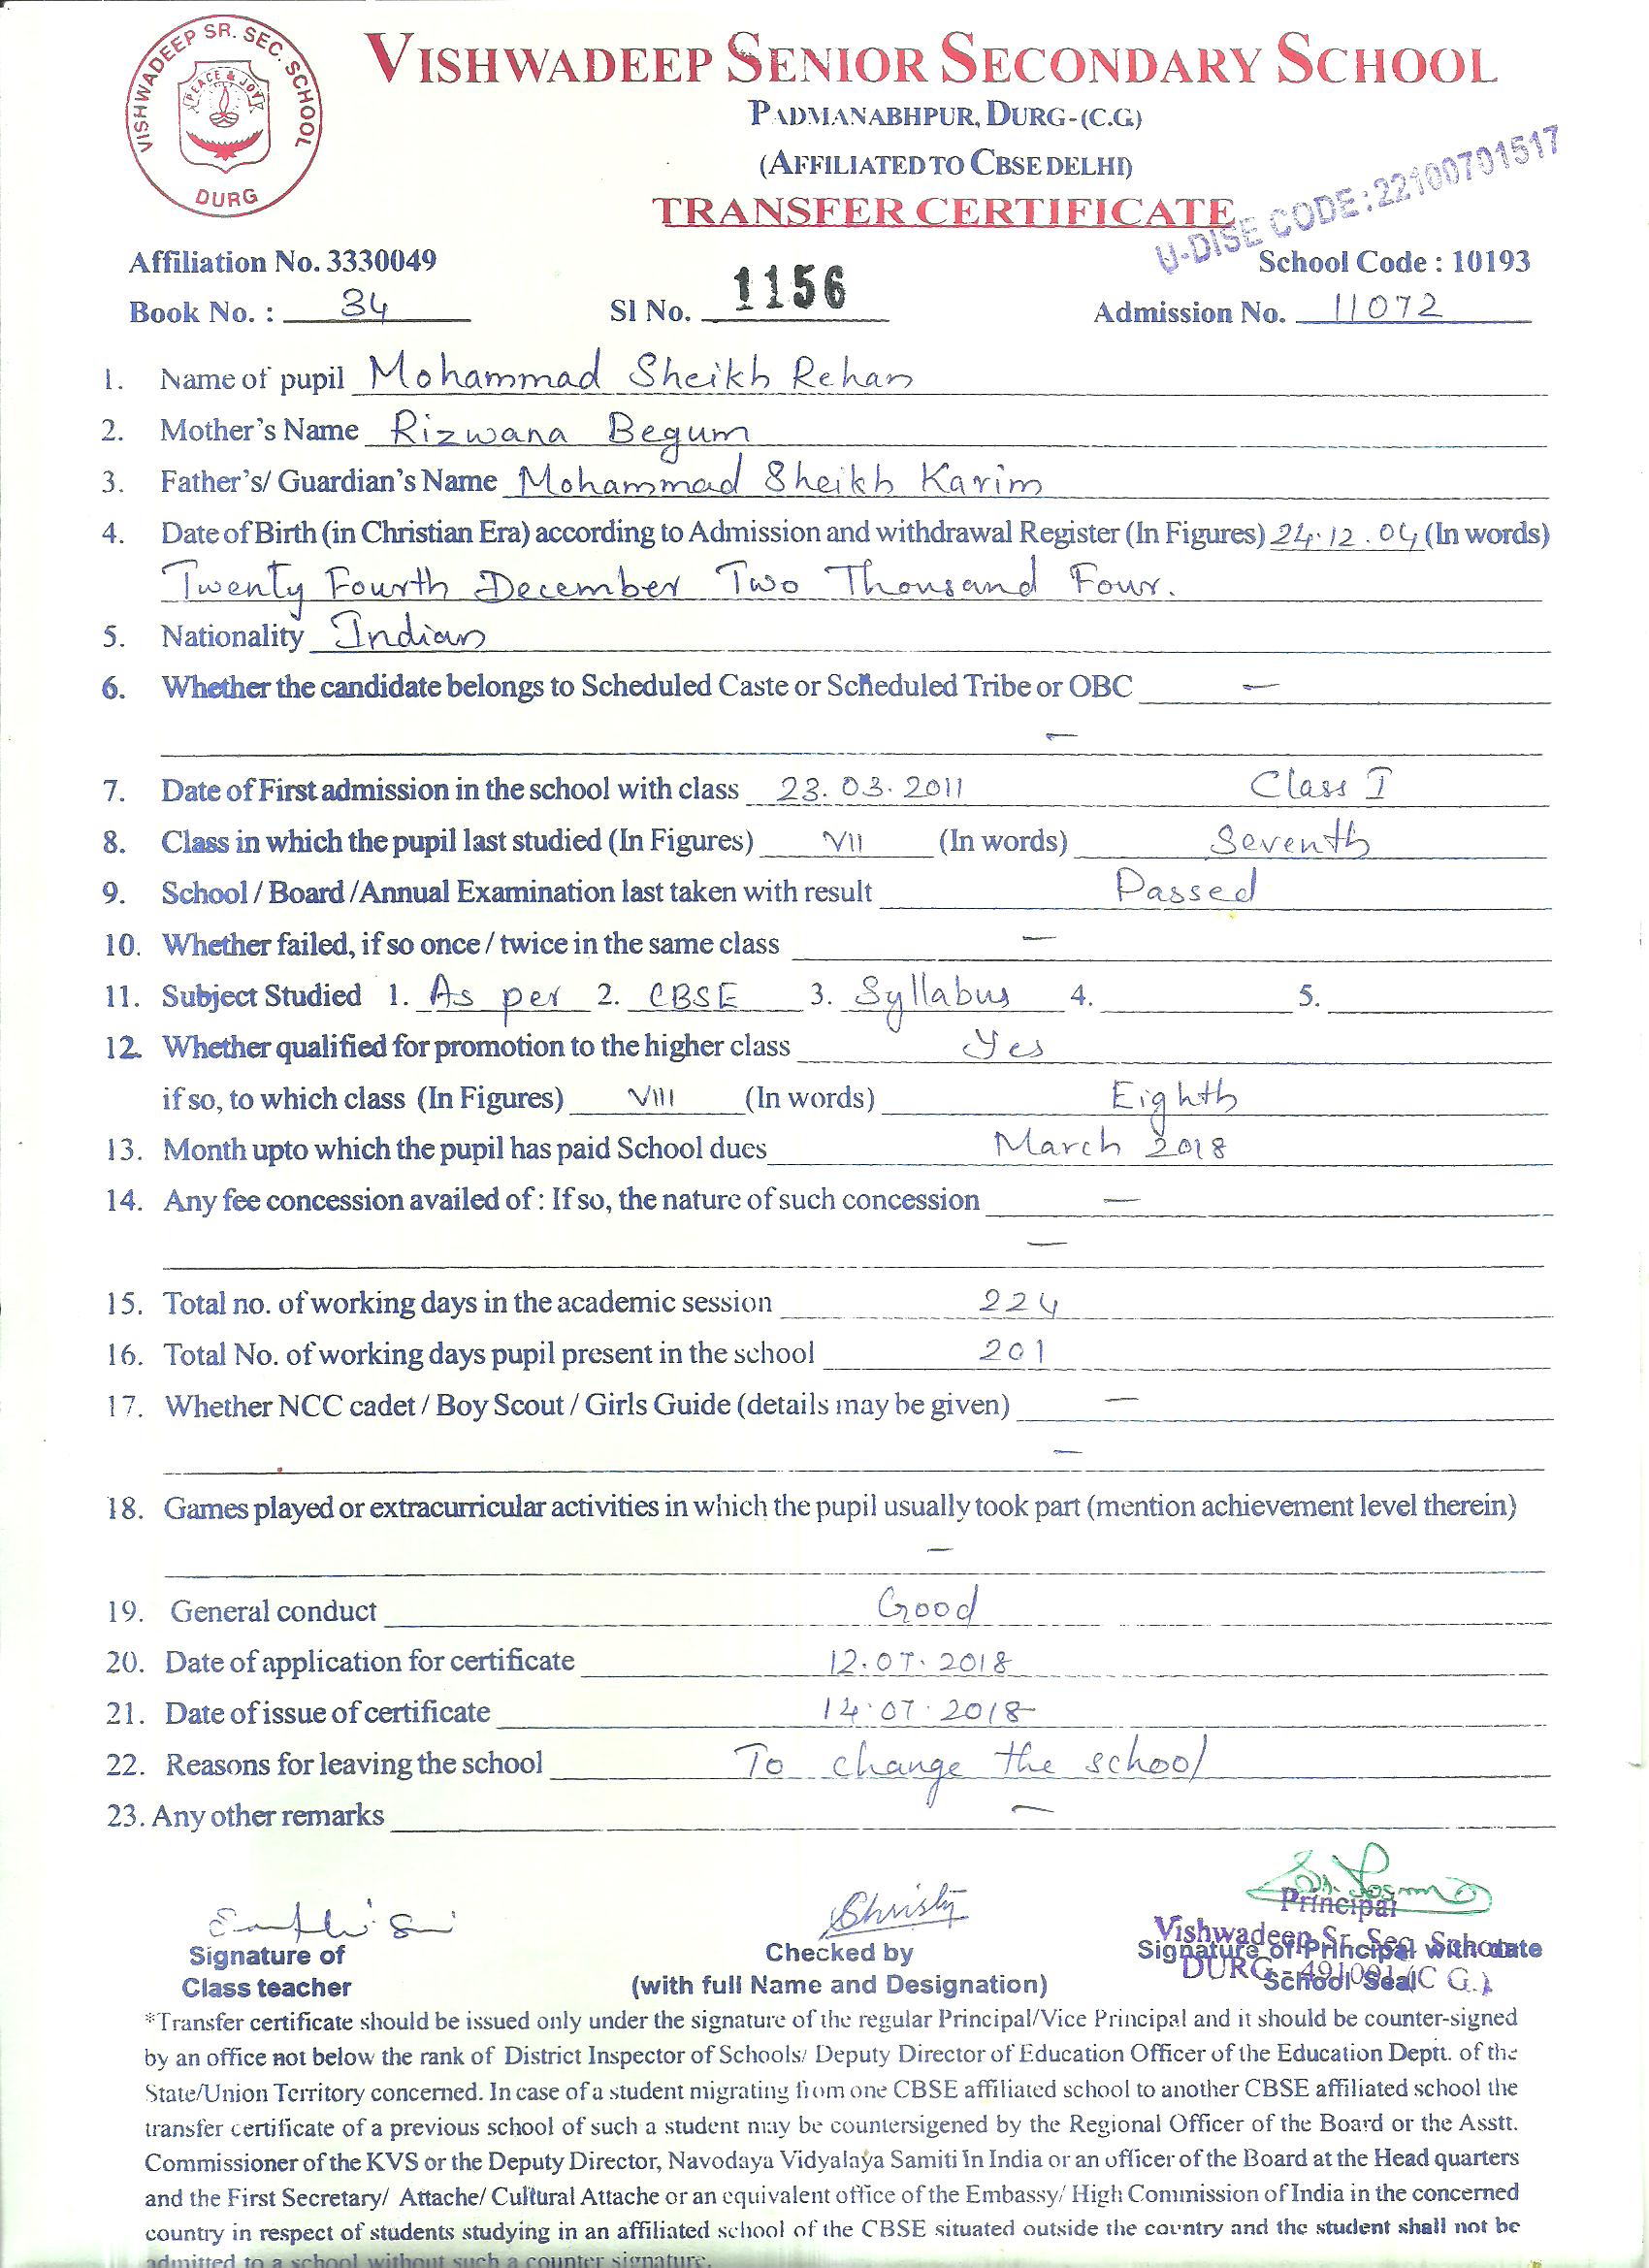 VISHWADEEP SR. SEC. SCHOOL
PEACE & JOY
DURG
VISHWADEEP SENIOR SECONDARY SCHOOL
PADMANABHPUR, DURG-(C.G.)
(AFFILIATED TO CBSE DELHI)
TRANSFER CERTIFICATE
U-DISE CODE:22100701517
Affiliation No. 3330049 School Code : 10193
Book No. : 34 Sl No. 1156 Admission No. 11072
1. Name of pupil Mohammad Sheikh Rehan
2. Mother's Name Rizwana Begum
3. Father's/ Guardian's Name Mohammad Sheikh Karim
4. Date of Birth (in Christian Era) according to Admission and withdrawal Register (In Figures) 24.12.04 (In words)
Twenty Fourth December Two Thousand Four.
5. Nationality Indian
6. Whether the candidate belongs to Scheduled Caste or Scheduled Tribe or OBC —
—
7. Date of First admission in the school with class 23.03.2011 Class I
8. Class in which the pupil last studied (In Figures) VII (In words) Seventh
9. School / Board /Annual Examination last taken with result Passed
10. Whether failed, if so once / twice in the same class —
11. Subject Studied 1. As per 2. CBSE 3. Syllabus 4. 5.
12. Whether qualified for promotion to the higher class Yes
if so, to which class (In Figures) VIII (In words) Eighth
13. Month upto which the pupil has paid School dues March 2018
14. Any fee concession availed of : If so, the nature of such concession —
—
15. Total no. of working days in the academic session 224
16. Total No. of working days pupil present in the school 201
17. Whether NCC cadet / Boy Scout / Girls Guide (details may be given) —
—
18. Games played or extracurricular activities in which the pupil usually took part (mention achievement level therein)
—
19. General conduct Good
20. Date of application for certificate 12.07.2018
21. Date of issue of certificate 14.07.2018
22. Reasons for leaving the school To change the school
23. Any other remarks —
Christy
Principal
Vishwadeep Sr. Sec. School
DURG - 491001 (C G.)
Signature of Checked by Signature of Principal with date
Class teacher (with full Name and Designation) School Seal
*Transfer certificate should be issued only under the signature of the regular Principal/Vice Principal and it should be counter-signed
by an office not below the rank of District Inspector of Schools/ Deputy Director of Education Officer of the Education Deptt. of the
State/Union Territory concerned. In case of a student migrating from one CBSE affiliated school to another CBSE affiliated school the
transfer certificate of a previous school of such a student may be countersigened by the Regional Officer of the Board or the Asstt.
Commissioner of the KVS or the Deputy Director, Navodaya Vidyalaya Samiti in India or an officer of the Board at the Head quarters
and the First Secretary/ Attache/ Cultural Attache or an equivalent office of the Embassy/ High Commission of India in the concerned
country in respect of students studying in an affiliated school of the CBSE situated outside the country and the student shall not be
admitted to a school without such a counter signature.